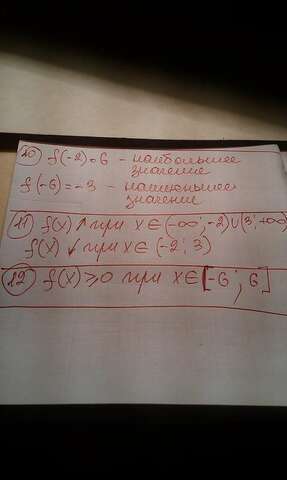 10) f(-2)=6 - наибольшее
значение
f(-6)=-3 - наименьшее
значение
11) f(x) ↑ при x∈(-∞; -2)∪(3; +∞)
f(x) ↓ при x∈(-2; 3)
12) f(x)≥0 при x∈[-6; 6]